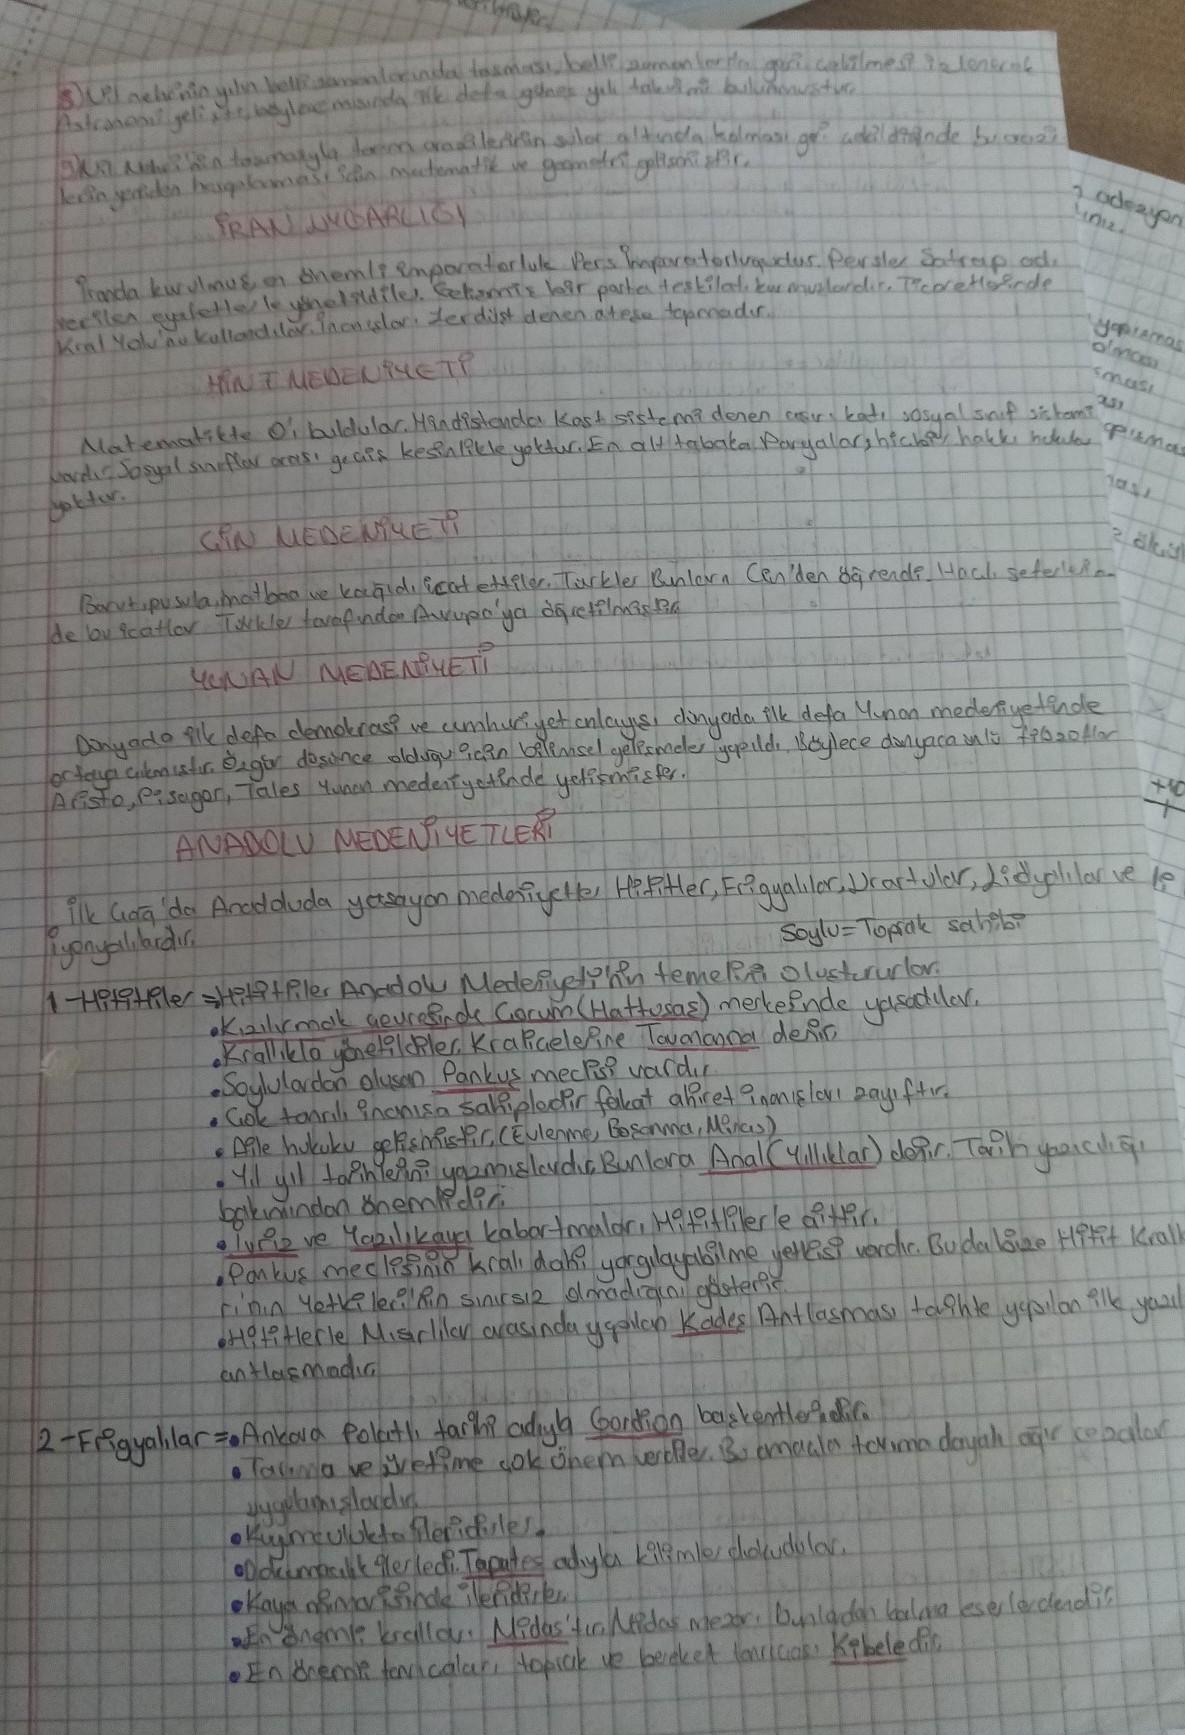 8) Nil nehrinin yılın belli zamanlarında taşması, belli zamanlarda geri çekilmesi izlenerek
Astronomi gelişti, böylece mısırda ilk defa güneş yılı takvimi bulunmuştur.
9) Nil Nehri'nin taşmasıyla tarım arazilerinin sular altında kalması geri çekildiğinde bu arazi
lerin yeniden hesaplanması için matematik ve geometri gelişmiştir.
İRAN UYGARLIĞI
İranda kurulmuş en önemli imparatorluk Pers İmparatorluğudur. Persler Satrap adı
verilen eyaletlerle yönetildiler. Gelişmiş bir posta teşkilatı kurmuşlardır. Ticaretlerinde
Kral Yolu'nu kullandılar. İnanışları Zerdüşt denen ateşe tapmadır.
HİNT MEDENİYETİ
Matematikte 0'ı buldular. Hindistanda Kast sistemi denen aşırı katı sosyal sınıf sistemi
vardır. Sosyal sınıflar arası geçiş kesinlikle yoktur. En alt tabaka Paryalar, hiçbir hakkı hukuku
yoktur.
ÇİN MEDENİYETİ
Barut, pusula, matbaa ve kağıdı icat ettiler. Türkler Bunları Çin'den öğrendi. Haçlı seferlerin
de bu icatlar Türkler tarafından Avrupa'ya öğretilmiştir.
YUNAN MEDENİYETİ
Dünyada ilk defa demokrasi ve cumhuriyet anlayışı dünyada ilk defa Yunan medeniyetinde
ortaya çıkmıştır. Özgür düşünce olduğu için bilimsel gelişmeler yapıldı. Böylece dünyaca ünlü filozoflar
Aristo, Pisagor, Tales Yunan medeniyetinde yetişmiştir.
ANADOLU MEDENİYETLERİ
İlk Çağ'da Anadoluda yaşayan medeniyetler Hititler, Frigyalılar, Urartular, Lidyalılar ve
İyonyalılardır.
Soylu=Toprak sahibi
1-Hititliler=Hititliler Anadolu Medeniyeti'nin temelini oluştururlar.
•Kızılırmak çevresinde Çorum(Hattuşaş) merkezinde yaşadılar.
•Krallıkla yönetildiler. Kraliçelerine Tavananna denir.
•Soylulardan oluşan Pankuş meclisi vardır
•Çok tanrılı inanışa sahiplerdir fakat ahiret inanışları zayıftır.
•Aile hukuku gelişmiştir.(Evlenme, Boşanma, Miras)
•Yıl yıl tarihlerini yazmışlardır. Bunlara Anal(Yıllıklar) denir. Tarih yazıcılığı
bakımından önemlidir.
•İvriz ve Yazılıkaya kabartmaları Hititlilerle aittir.
•Pankuş meclisinin kralı dahi yargılayabilme yetkisi vardır. Buda bize Hitit Kralla
rı'nın yetkileri'nin sınırsız olmadığını gösterir.
•Hititlerle Mısırlılar arasında yapılan Kadeş Antlaşması tarihte yapılan ilk yazıl
antlaşmadır.
2-Frigyalılar=•Ankara Polatlı tarihi adıyla Gordion başkentleridir.
•Tarıma ve üretime çok önem verdiler. Bu amaçla tarıma dayalı ağır cezalar
uygulamışlardır.
•Kuyumculukta ileridirler.
•Dokumacılık ilerledi. Tapates adıyla kilimler dokudular.
•Kaya mimarisinde ileridirler.
•En önemli kralları Midas'tır. Midas mezarı bunlardan kalma eserlerdendir.
•En önemli tanrıçaları toprak ve bereket tanrıçası Kibeledir.
? adezyon
yapışması
olması
+40